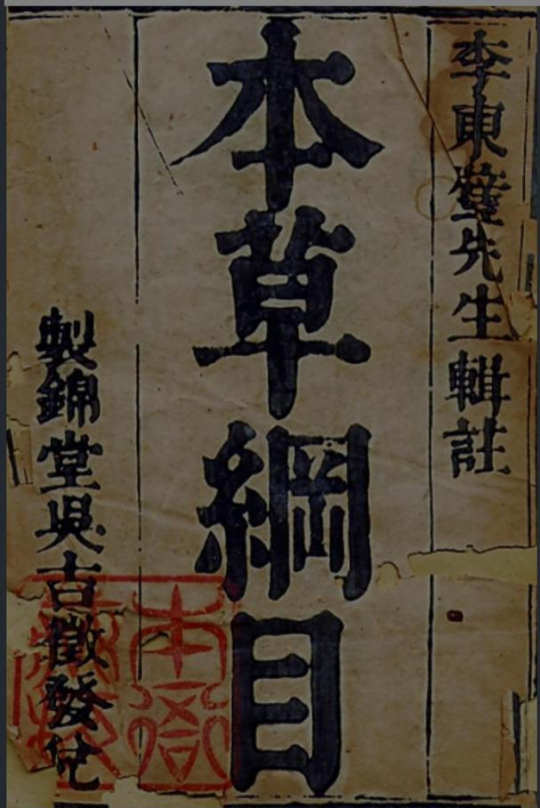 李東璧先生輯註
本草綱目
製錦堂吳吉徵發兌
本衙